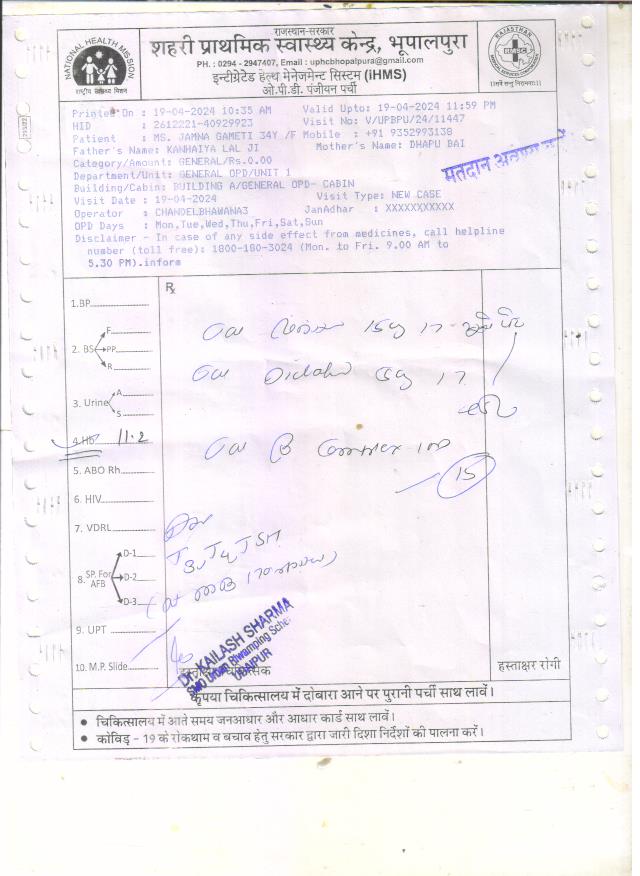 NATIONAL HEALTH MISSION
राष्ट्रीय स्वास्थ्य मिशन
राजस्थान-सरकार
शहरी प्राथमिक स्वास्थ्य केन्द्र, भूपालपुरा
PH. : 0294 - 2947407, Email : uphcbhopalpura@gmail.com
इन्टीग्रेटेड हेल्थ मेनेजमेन्ट सिस्टम (iHMS)
ओ.पी.डी. पंजीयन पर्ची
RAJASTHAN
Printed On : 19-04-2024 10:35 AM Valid Upto: 19-04-2024 11:59 PM
HID : 2612221-40929923 Visit No: V/UPBPU/24/11447
Patient : MS. JAMNA GAMETI 34Y /F Mobile : +91 9352993138
Father's Name: KANHAIYA LAL JI Mother's Name: DHAPU BAI
Category/Amount: GENERAL/Rs.0.00
मतदान अवश्य करें
Department/Unit: GENERAL OPD/UNIT 1
Building/Cabin: BUILDING A/GENERAL OPD- CABIN
Visit Date : 19-04-2024 Visit Type: NEW CASE
Operator : CHANDELBHAWANA3 JanAdhar : XXXXXXXXXXX
OPD Days : Mon,Tue,Wed,Thu,Fri,Sat,Sun
Disclaimer - In case of any side effect from medicines, call helpline
number (toll free): 1800-180-3024 (Mon. to Fri. 9.00 AM to
5.30 PM).inform
Rx
1.BP
2. BS F
PP
R
3. Urine A
S
4.Hb 11.2
15
5. ABO Rh
6. HIV
7. VDRL
T3, T4, TSH
8. SP. For AFB D-1
D-2
D-3
9. UPT
10. M.P. Slide
Dr. KAILASH SHARMA
UDAIPUR
हस्ताक्षर रोगी
कृपया चिकित्सालय में दोबारा आने पर पुरानी पर्ची साथ लावें।
● चिकित्सालय में आते समय जनआधार और आधार कार्ड साथ लावें।
● कोविड़ - 19 के रोकथाम व बचाव हेतु सरकार द्वारा जारी दिशा निर्देशों की पालना करें।